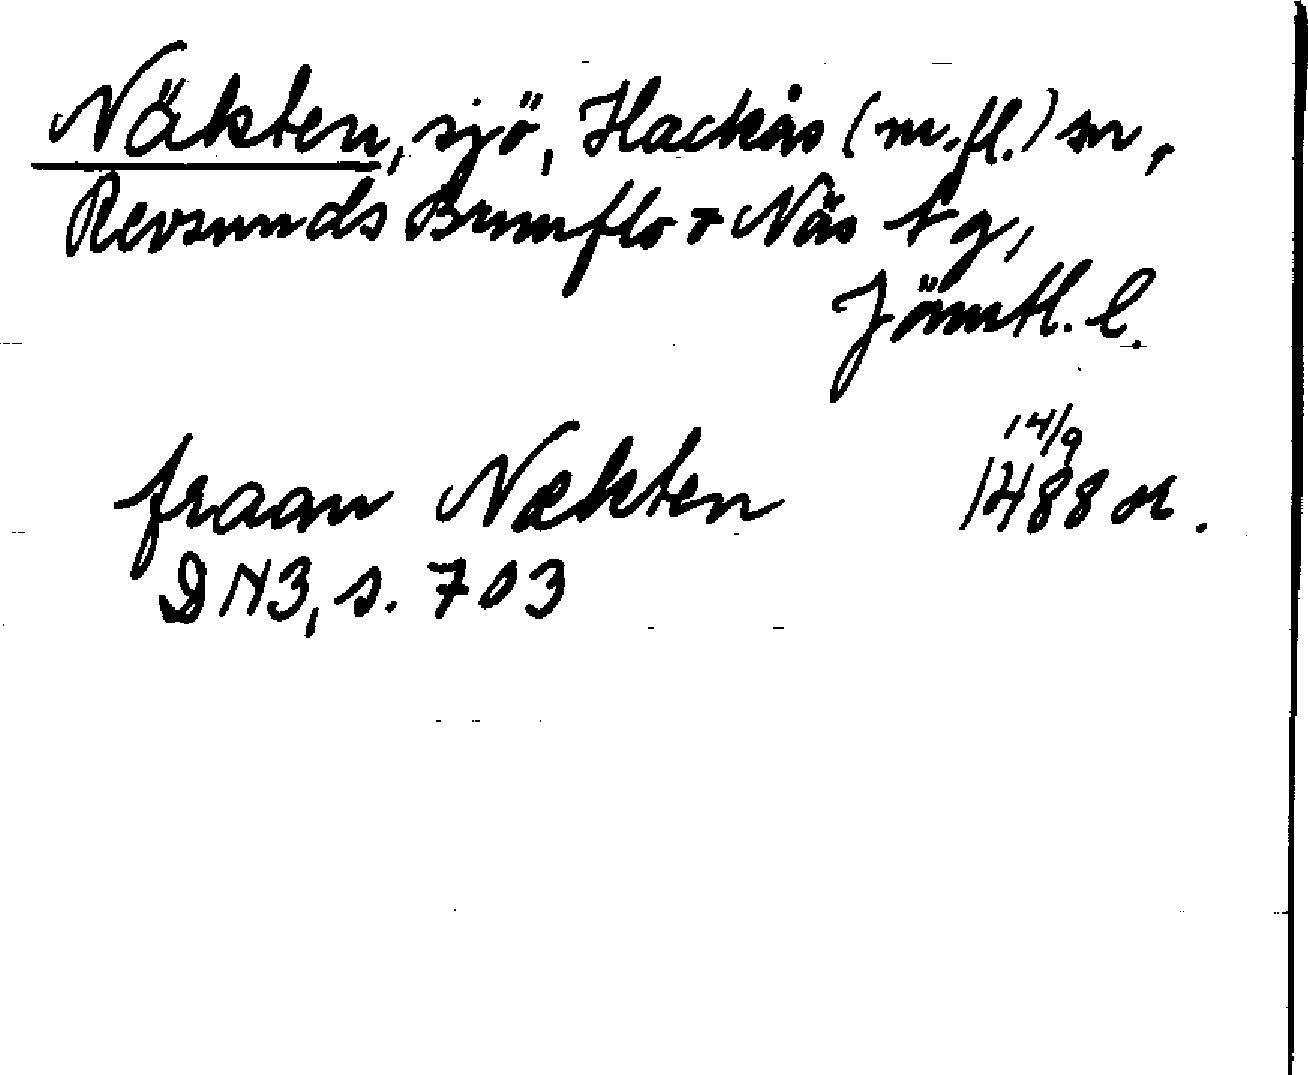 Näkten, sjö, Hackås (m.fl.) sn,
Revsunds Brunflo + Näs tg,
Jämtl. l.
14/9
fraan Nækten 1488 or.
DN3, s. 703